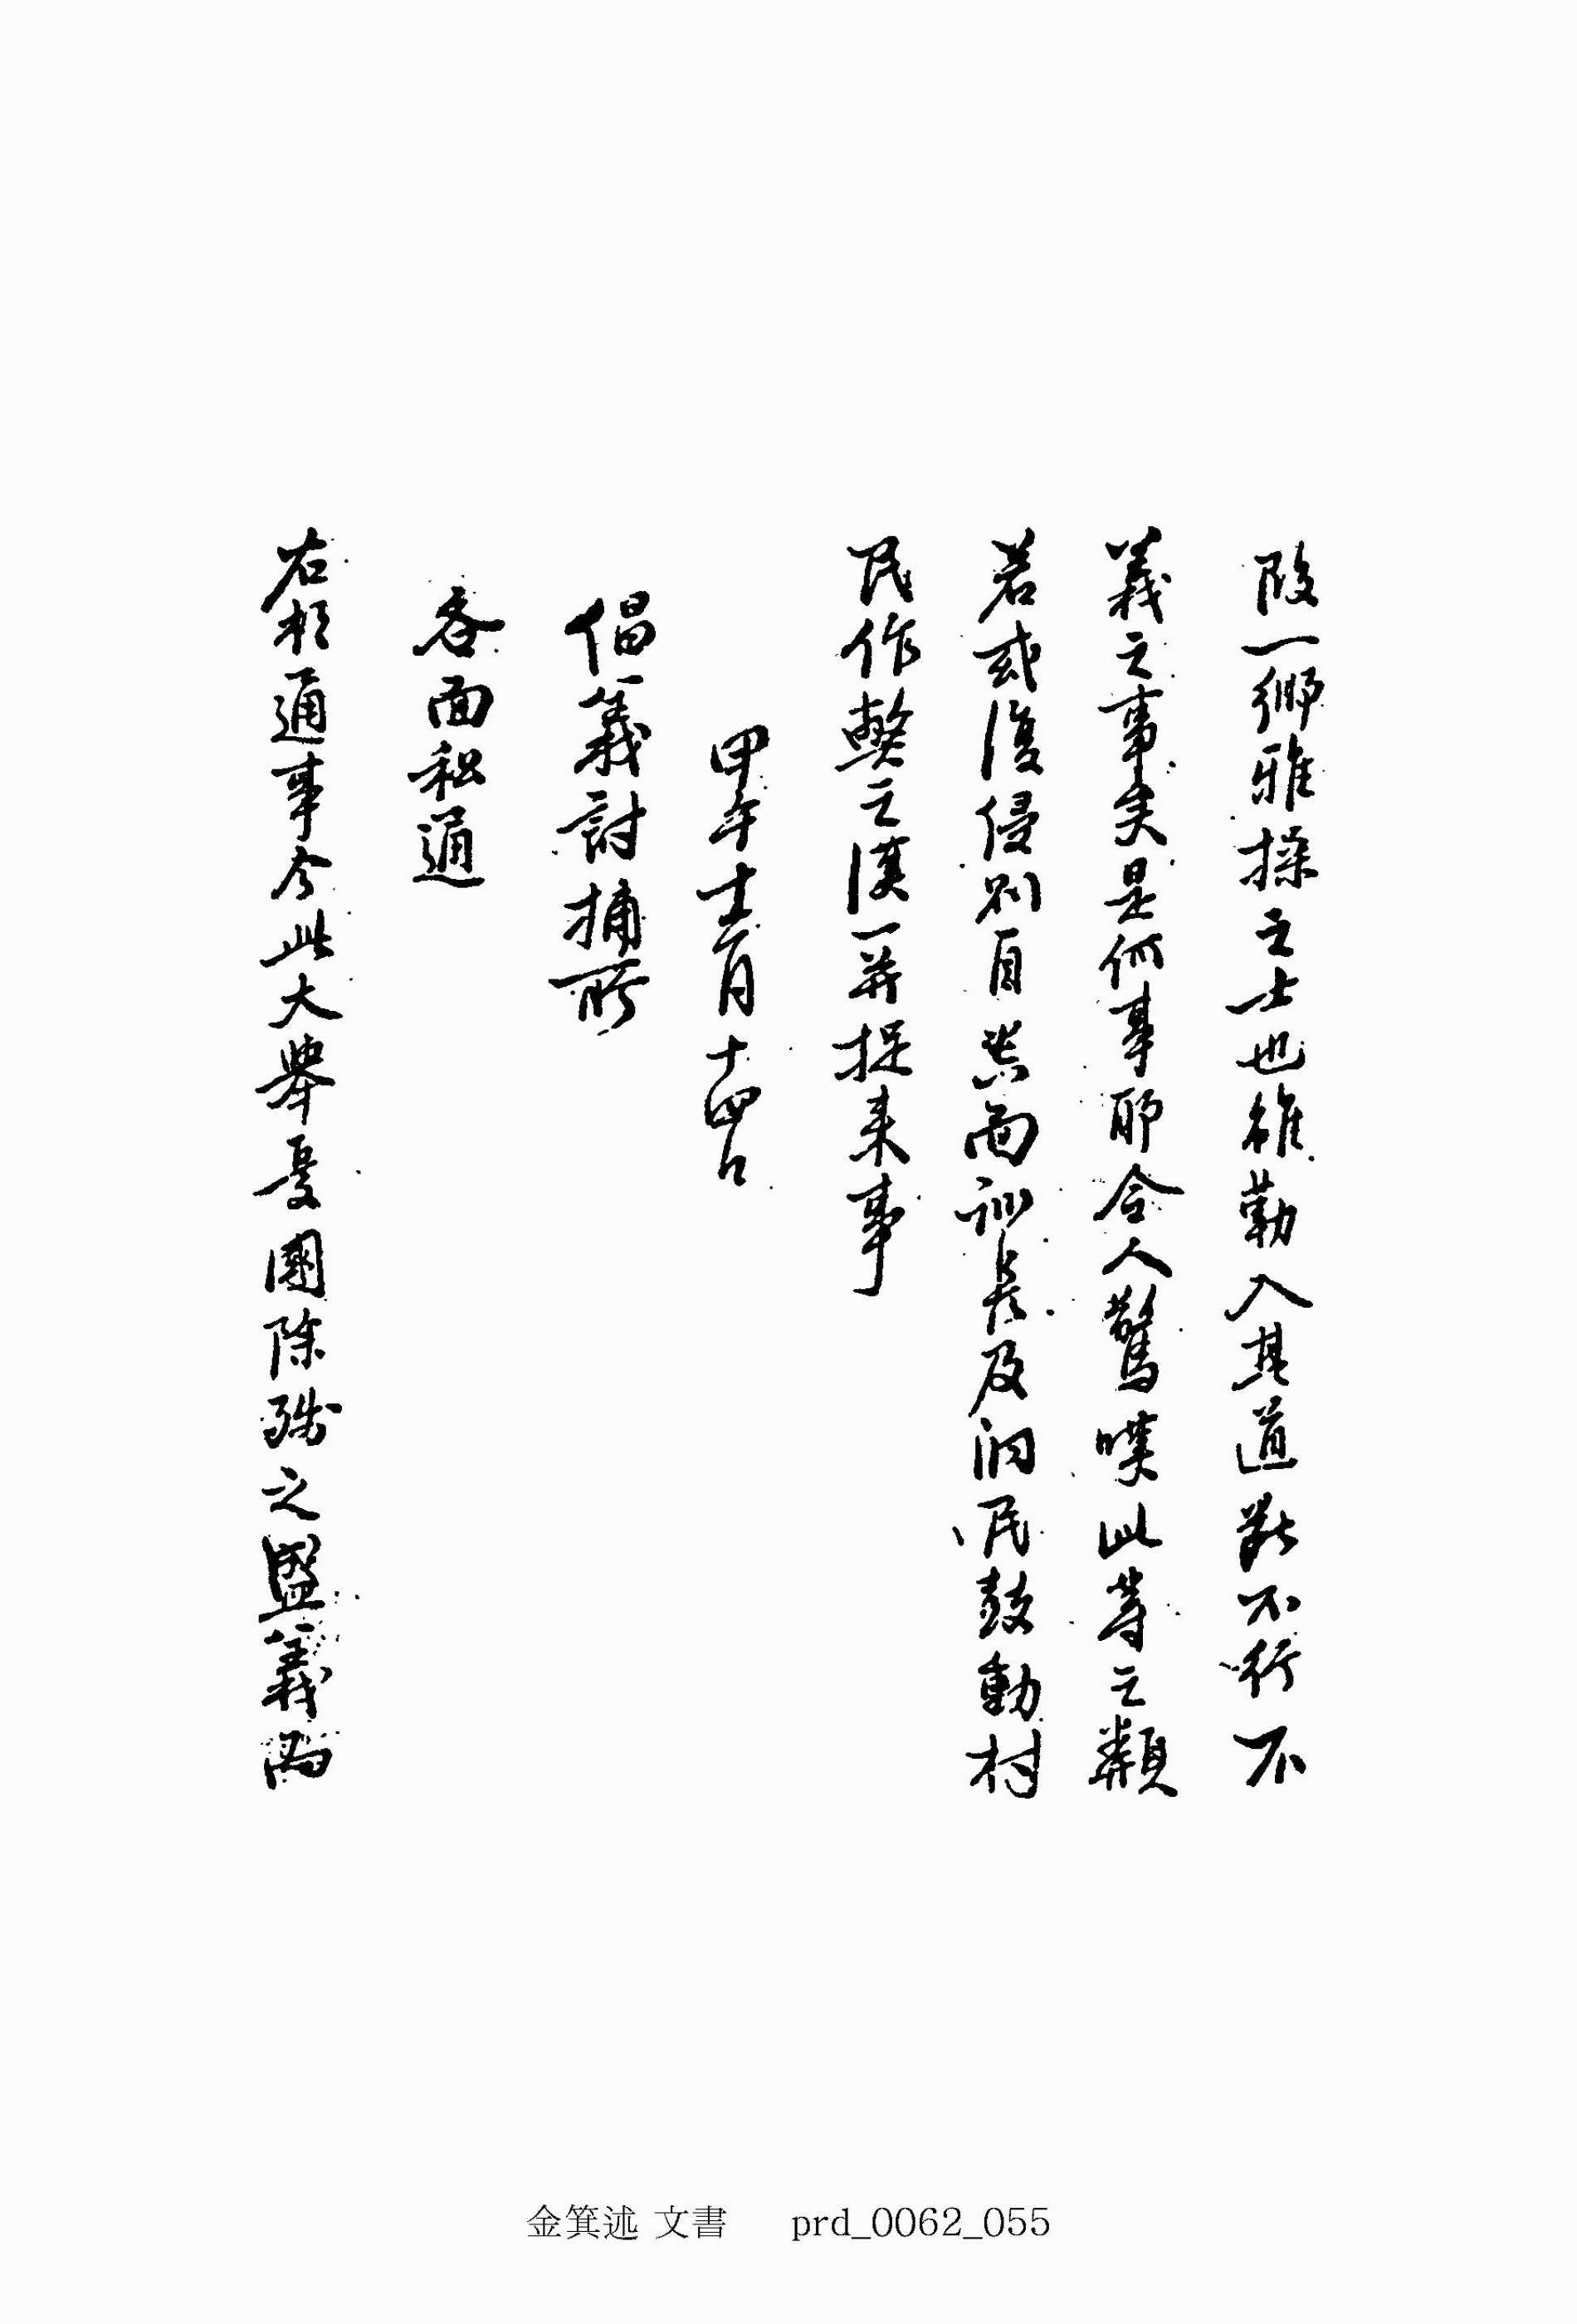 段一鄕雅操之士也雖勒入其道斷不行不
義之事矣是何事耶令人驚嘆此等之類
若或復侵則自其面訓長及洞民鼓動村
民作弊之漢一幷捉來事
甲午十二月十四日
倡義討捕所
各面私通
右於通事今此大擧憂國除殘之盟義而
金箕述 文書 prd_0062_055